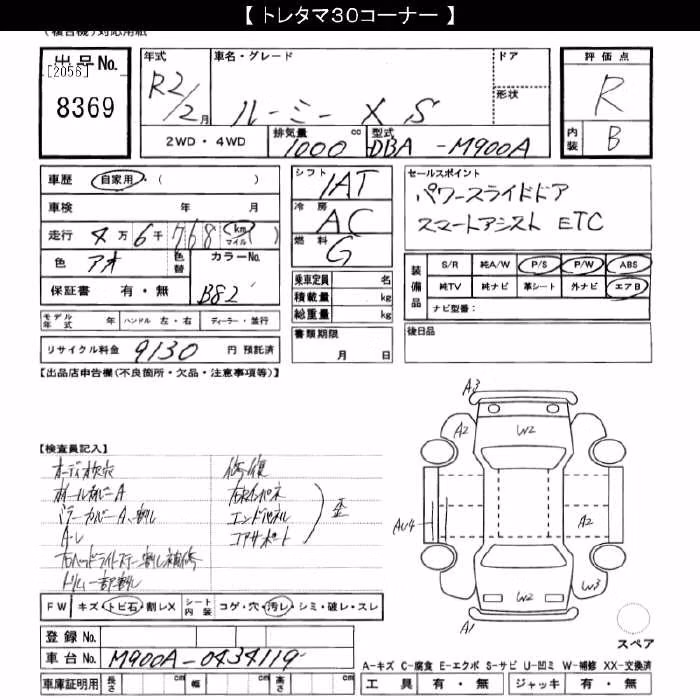 【 トレタマ30コーナー 】
(複合機)対応用紙
出品No.
[2056]
8369
年式
R2/2月
車名・グレード
ルーミー X S
ドア
形状
評価点
R
内装
B
2WD・4WD
排気量
1000 cc
型式
DBA-M900A
車歴 自家用・( )
車検 年 月
走行 4万6千768 (km マイル)
色 アオ
色替
カラーNo.
B82
保証書 有・無
モデル年式 年 ハンドル 左・右 ディーラー・並行
リサイクル料金 9130 円 預託済
シフト
IAT
冷房
AC
燃料
G
乗車定員 名
積載量 kg
総重量 kg
書類期限
月 日
セールスポイント
パワースライドドア
スマートアシスト ETC
装備品
S/R 純A/W P/S P/W ABS
純TV 純ナビ 革シート 外ナビ エアB
ナビ型番:
後日品
【出品店申告欄(不良箇所・欠品・注意事項等)】
【検査員記入】
オーディオ欠
A・レ
修復
エンドパネル
コアサポート
歪
A3
A2
W2
AU4
A2
W2
W3
A1
FW キズ・トビ石・割レX シート内装 コゲ・穴・汚レ・シミ・破レ・スレ
登録No.
車台No. M900A-0434119
車庫証明用 長さ cm 幅 cm 高さ cm
スペア
A-キズ C-腐食 E-エクボ S-サビ U-凹ミ W-補修 XX-交換済
工具 有・無 ジャッキ 有・無